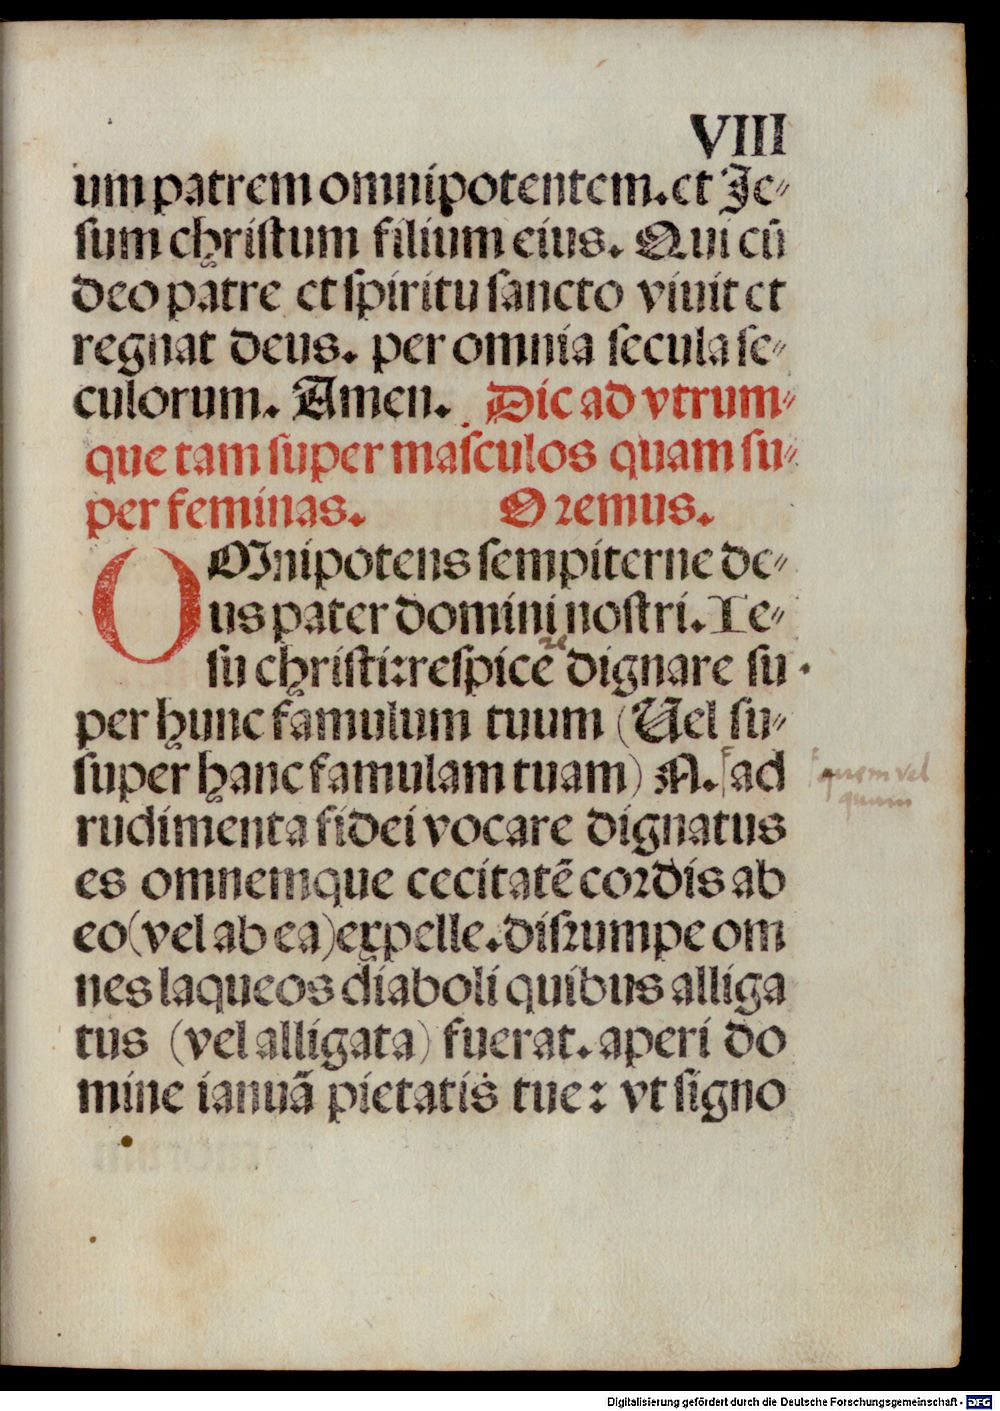 VIII
um patrem omnipotentem. et Je⸗
ſum chriſtum filium eius. Qui cū
deo patre et ſpiritu ſancto viuit et
regnat deus. per omnia ſecula ſe⸗
culorum. Amen. Dic ad vtrum⸗
que tam ſuper maſculos quam ſu⸗
per feminas. Oꝛemus.
OMnipotens ſempiterne de⸗
us pater domini noſtri. Ie⸗
ſu chriſti: reſpice dignare ſu
per hunc famulum tuum (Uel ſu⸗
ſuper hanc famulam tuam) N. ad
quem vel
quam
rudimenta fidei vocare dignatus
es omnemque cecitatē coꝛdis ab
eo (vel ab ea) expelle. diſꝛumpe om
nes laqueos diaboli quibus alliga
tus (vel alligata) fuerat. aperi do
mine ianuā pietatis tue: vt ſigno
Digitalisierung gefördert durch die Deutsche Forschungsgemeinschaft - DFG